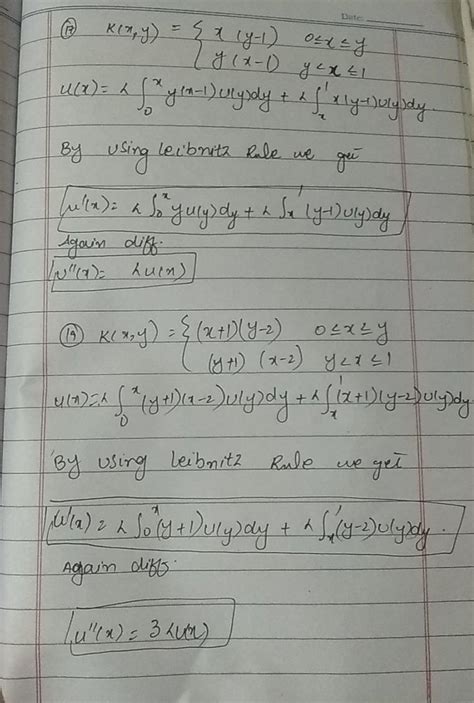 Date:
(17) K(x,y) = { x (y-1) 0≤x≤y
y (x-1) y<x≤1
u(x) = λ ∫₀ˣ y(x-1)u(y)dy + λ ∫ₓ¹ x(y-1)u(y)dy.
By using Leibnitz Rule we get
u'(x) = λ ∫₀ˣ yu(y)dy + λ ∫ₓ¹ (y-1)u(y)dy
Again diff.
u''(x) = λu(x)
K(x,y) = { (x+1)(y-2) 0≤x≤y
(y+1) (x-2) y<x≤1
u(x) = λ ∫₀ˣ (y+1)(x-2)u(y)dy + λ ∫ₓ¹ (x+1)(y-2)u(y)dy
By using Leibnitz Rule we get
u'(x) = λ ∫₀ˣ (y+1)u(y)dy + λ ∫ₓ¹ (y-2)u(y)dy.
Again diff.
u''(x) = 3λu(x)